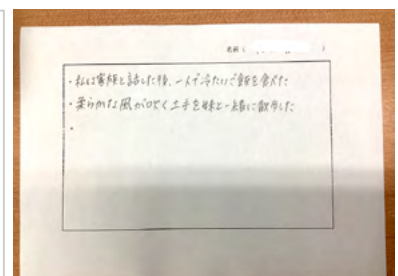 名前( )
・私は家族と話した後、一人で冷たいご飯を食べた
・柔らかな風が吹く土手を妹と一緒に散歩した
・